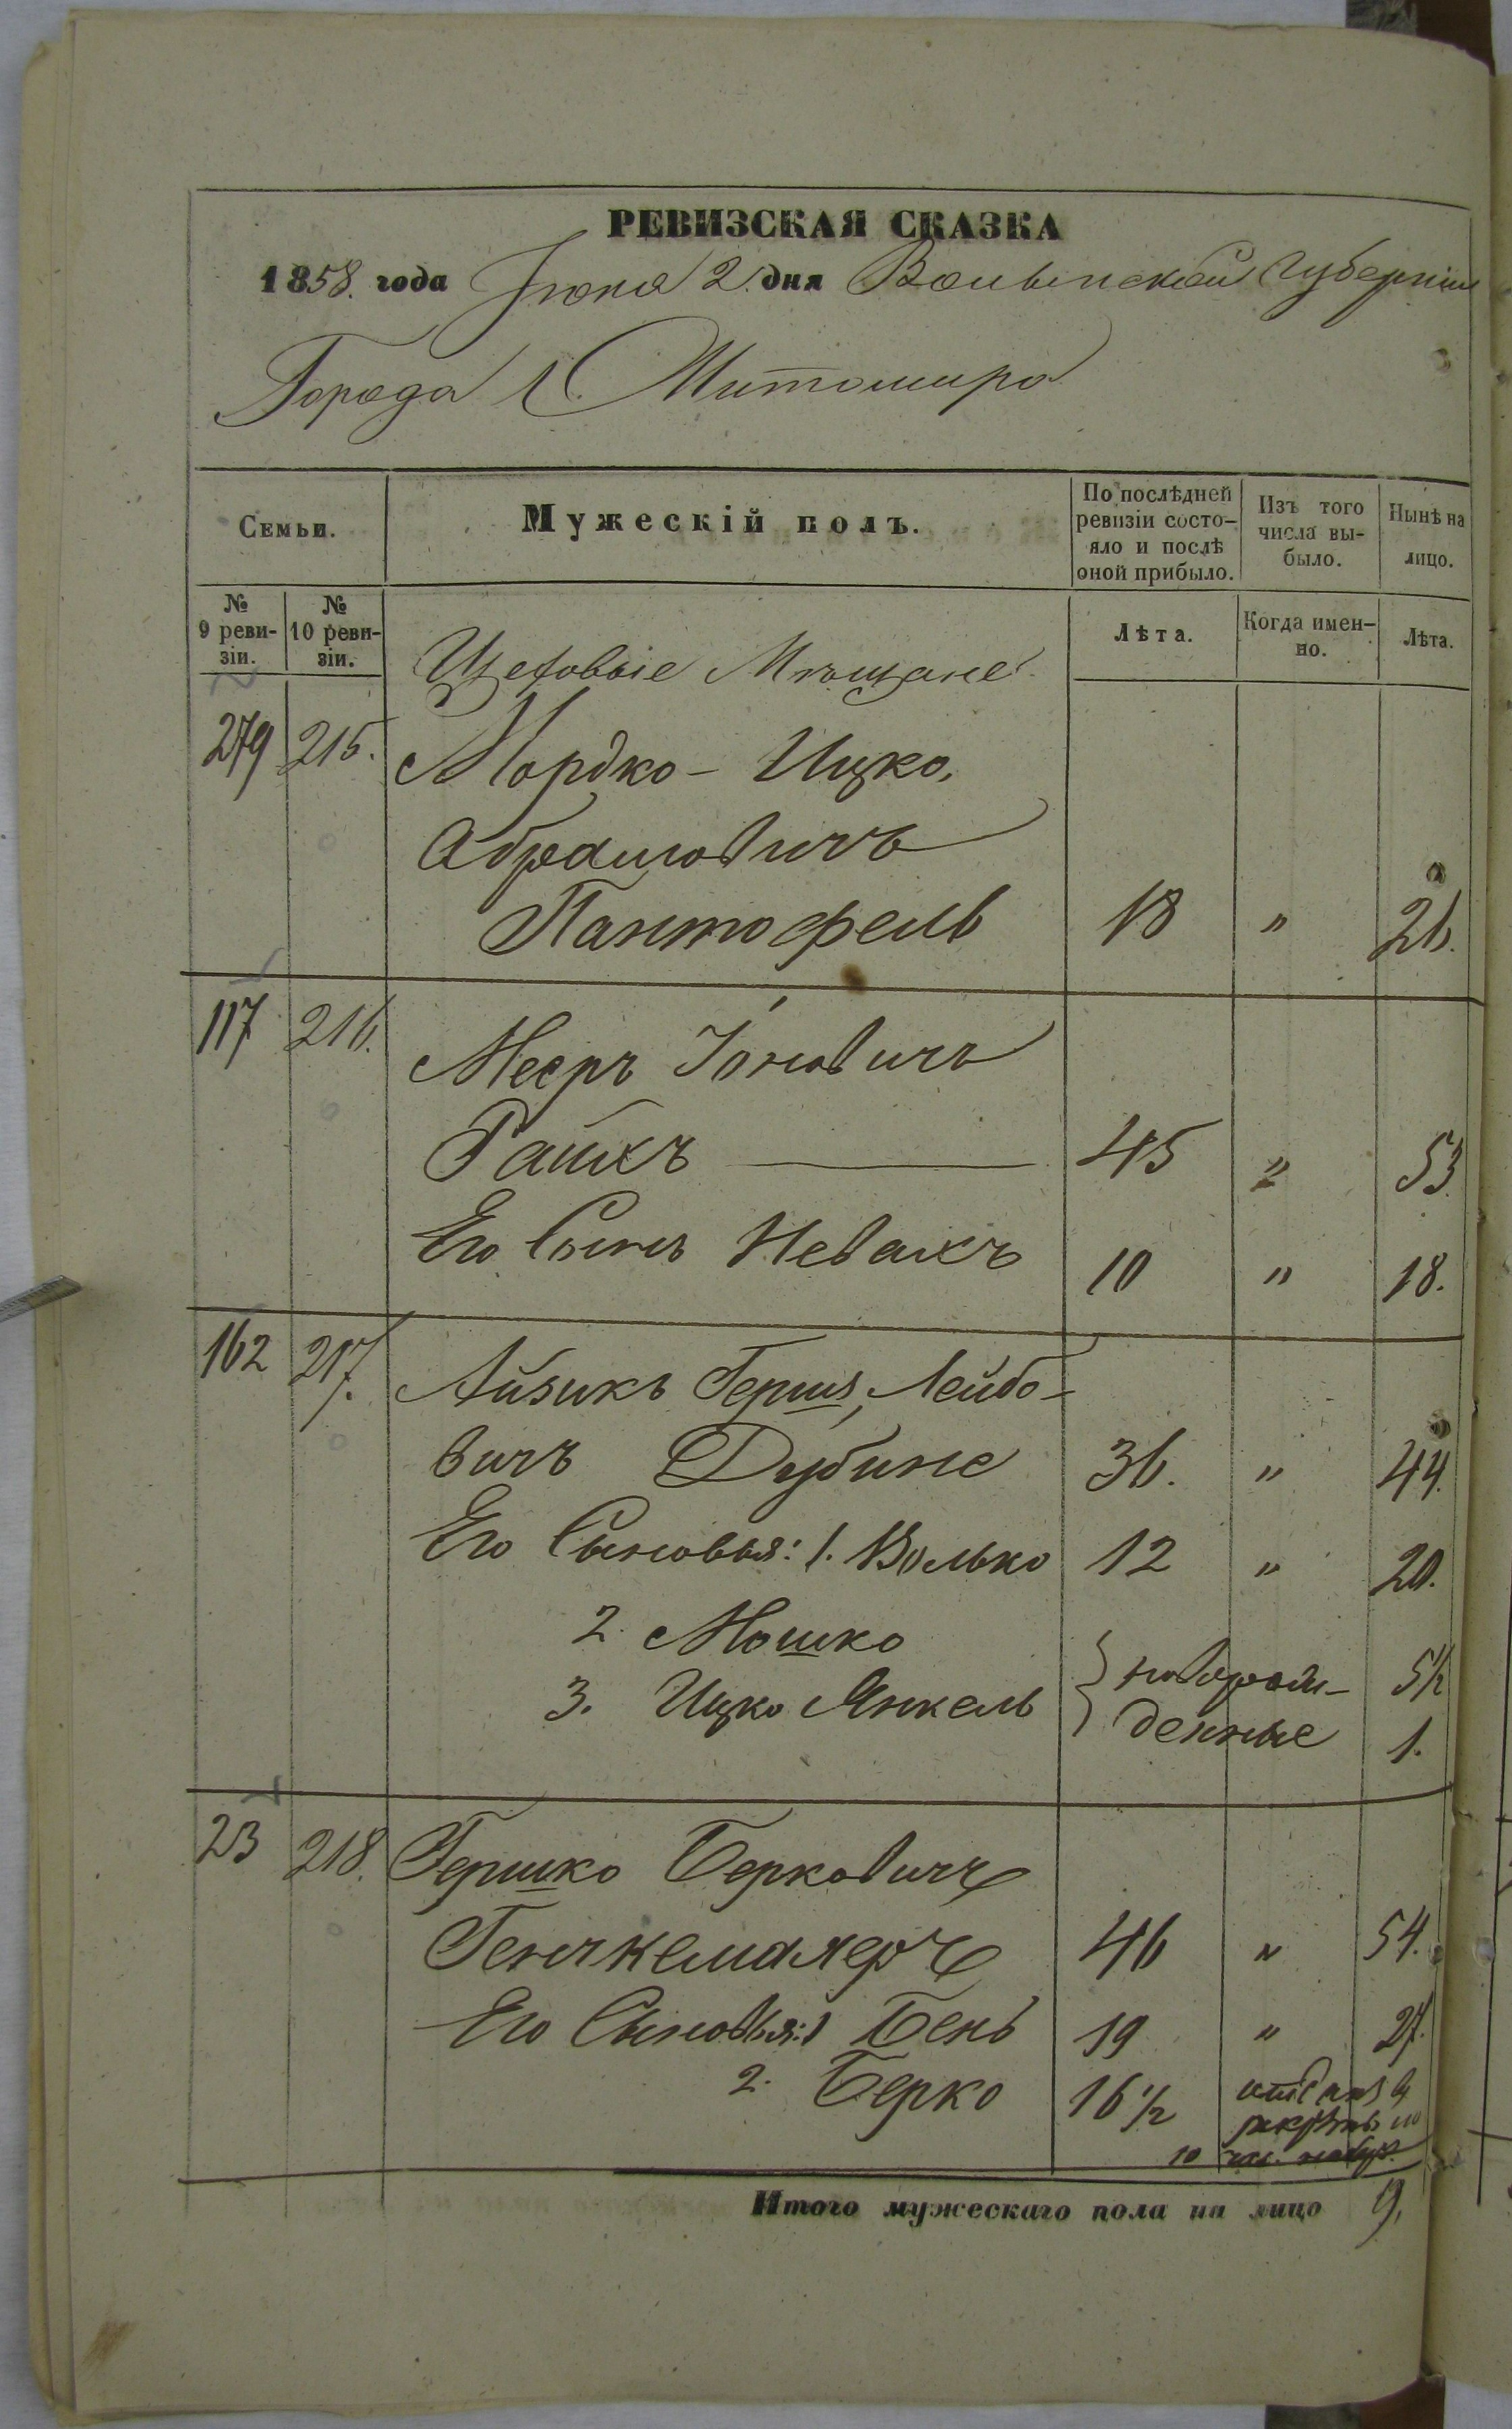 РЕВИЗСКАЯ СКАЗКА
1858. года Іюня 2 дня Волынской Губерніи
Города Житомира
Семьи.
Мужескій полъ.
По послѣдней ревизіи состо-
яло и послѣ
оной прибыло.
Изъ того
числа вы-
было.
Нынѣ на
лицо.
№
9 реви-
зіи.
№
10 реви-
зіи.
Лѣта.
Когда имен-
но.
Лѣта.
Цеховые Мѣщане
279 215. Мордко - Ицко,
Абрамовичъ
Пантофель 18 " 26.
117 216. Мееръ Іоновичъ
Райхъ 45 " 53.
Его Сынъ Невахъ 10 " 18.
162 217. Айзикъ Герш, Лейбо-
вичъ Дубине 36. " 44.
Его Сыновья: 1. Волько 12 " 20.
2. Мошко новорож- 5½
3. Ицко Янкель денные 1.
23 218. Гершко Берковичъ
46 " 54.
Его Сыновья: 1 Бень 19 " 27.
2. Берко 16 1/2
10
Итого мужескаго пола на лицо 9.